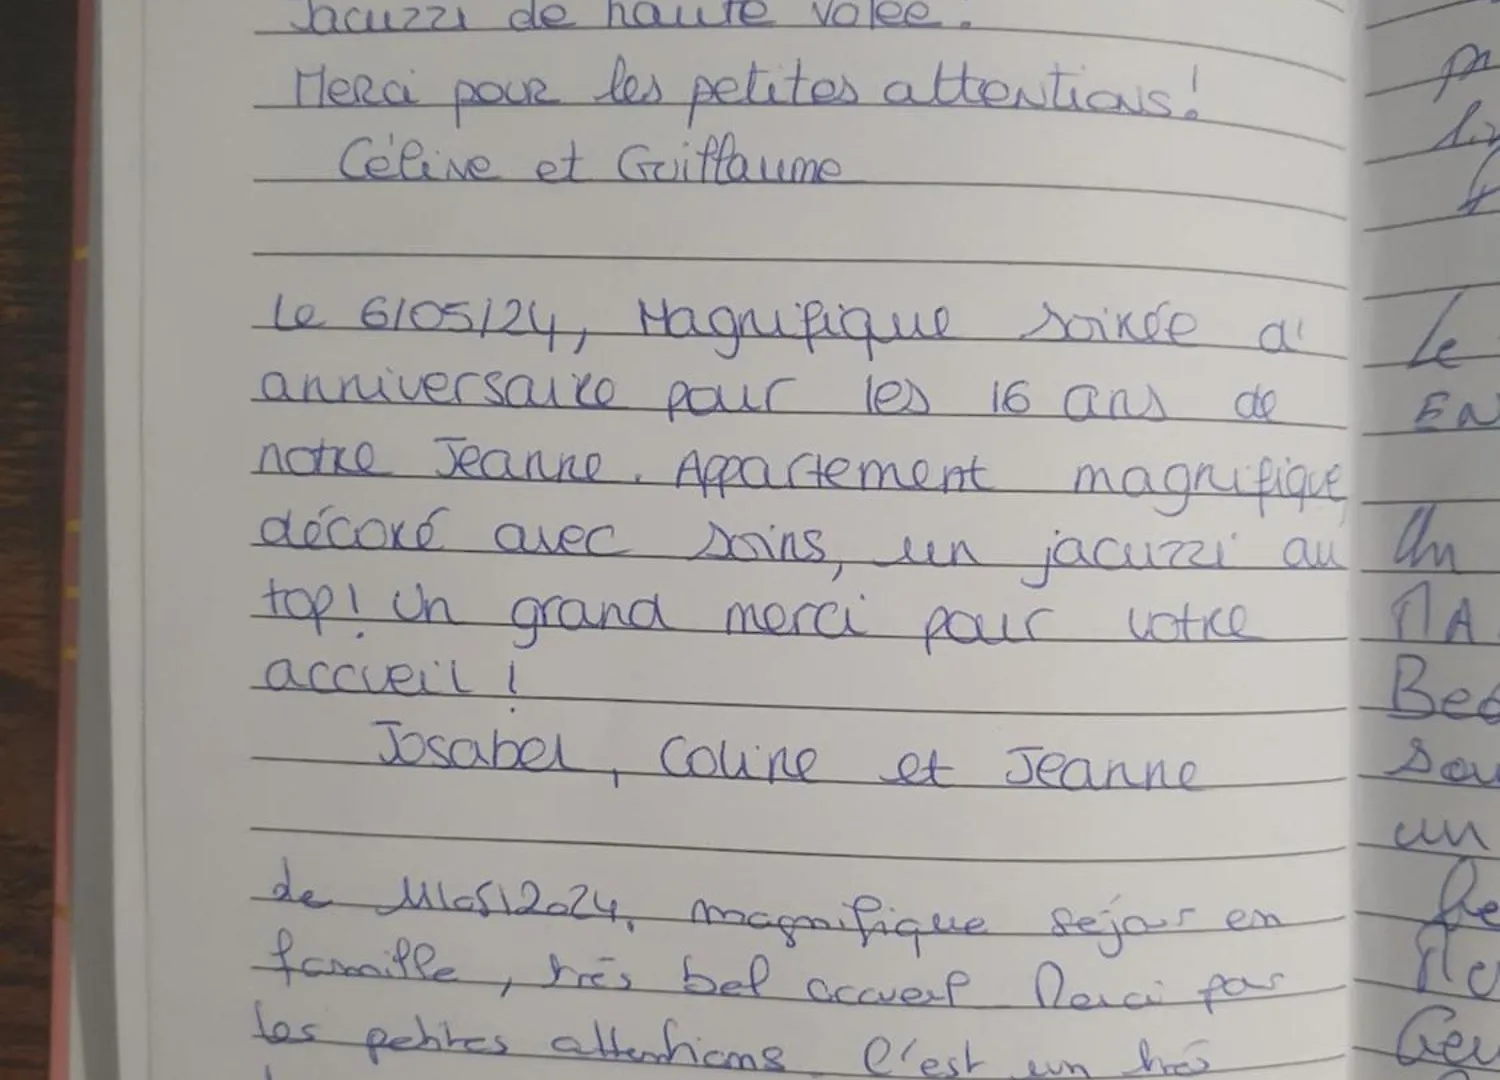 Jacuzzi de haute volée.
Merci pour les petites attentions!
Céline et Guillaume
Le 6/05/24, Magnifique soirée d'
anniversaire pour les 16 ans de
notre Jeanne. Appartement magnifique,
décoré avec soins, un jacuzzi au
top! Un grand merci pour votre
accueil!
Josabel, Coline et Jeanne
magnifique séjour en
famille, très bel accueil Merci pour
les petites attentions. C'est un très
Le
EN
Un
MA
un